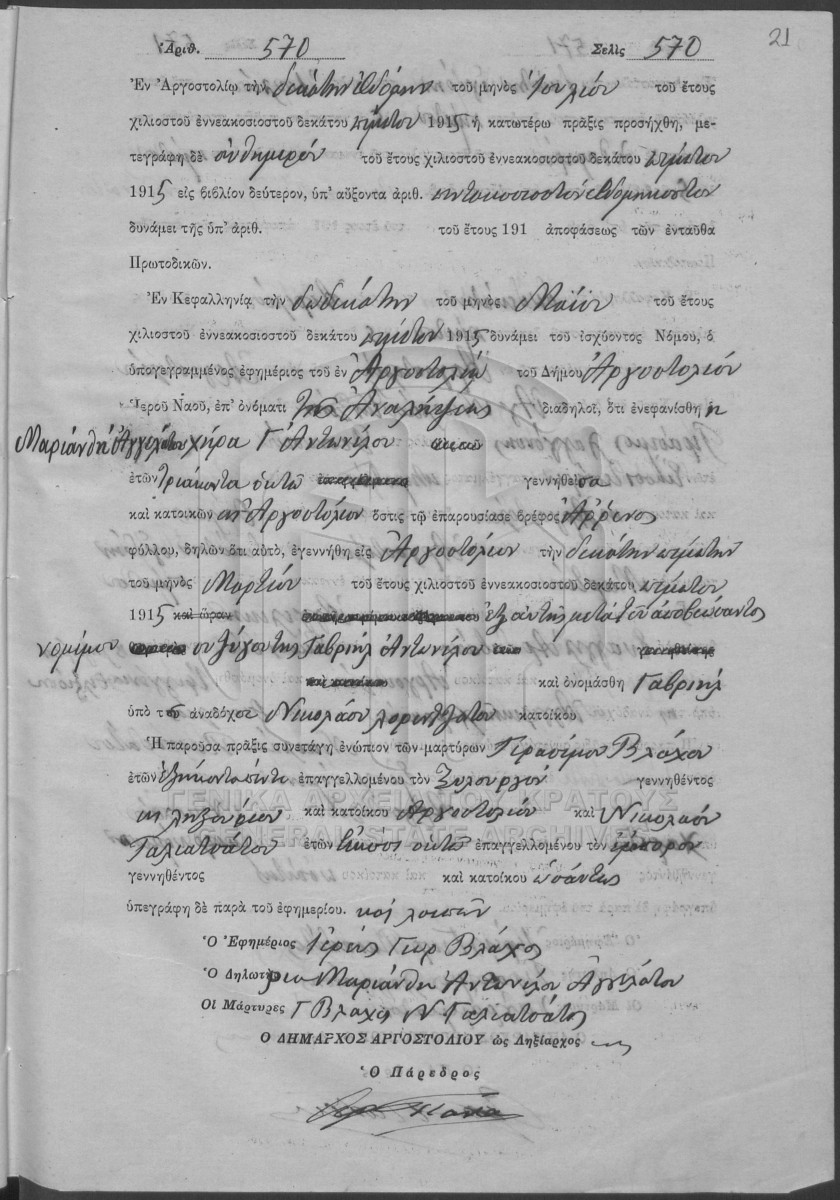 21
Ἀριθ. 570 Σελὶς 570
Ἐν Ἀργοστολίῳ τὴν δεκάτην ἑβδόμην τοῦ μηνὸς Ἰουλίου τοῦ ἔτους
χιλιοστοῦ ἐννεακοσιοστοῦ δεκάτου πέμπτου 1915 ἡ κατωτέρω πρᾶξις προσήχθη, με-
τεγράφη δὲ αὐθημερόν τοῦ ἔτους χιλιοστοῦ ἐννεακοσιοστοῦ δεκάτου πέμπτου
1915 εἰς βιβλίον δεύτερον, ὑπ' αὔξοντα ἀριθ. πεντακοσιοστόν ἑβδομηκοστόν
δυνάμει τῆς ὑπ' ἀριθ. τοῦ ἔτους 191 ἀποφάσεως τῶν ἐνταῦθα
Πρωτοδικῶν.
Ἐν Κεφαλληνίᾳ τὴν δωδεκάτην τοῦ μηνὸς Μαΐου τοῦ ἔτους
χιλιοστοῦ ἐννεακοσιοστοῦ δεκάτου πέμπτου 1915 δυνάμει τοῦ ἰσχύοντος Νόμου, ὁ
ὑπογεγραμμένος ἐφημέριος τοῦ ἐν Ἀργοστολίῳ τοῦ Δήμου Ἀργοστολίου
Ἱεροῦ Ναοῦ, ἐπ' ὀνόματι τῆς Ἀναλήψεως διαδηλοῖ, ὅτι ἐνεφανίσθη ἡ
Μαριάνθη Ἀγγελάτου χήρα Γ Ἀντωνίλου
ἐτῶν τριάκοντα ὀκτώ γεννηθεῖσα
καὶ κατοικῶν εἰς Ἀργοστόλιον ὅστις τῷ ἐπαρουσίασε βρέφος Ἄρρενος
φύλλου, δηλῶν ὅτι αὐτὸ, ἐγεννήθη εἰς Ἀργοστόλιον τὴν δεκάτην πέμπτην
τοῦ μηνὸς Μαρτίου τοῦ ἔτους χιλιοστοῦ ἐννεακοσιοστοῦ δεκάτου πέμπτου
1915 καὶ ὥραν ἐξ αὐτῆς μετὰ τοῦ ἀποβιώσαντος
νομίμου συζύγου της Γαβριήλ Ἀντωνίλου
καὶ ὀνομάσθη Γαβριήλ
ὑπὸ τοῦ ἀναδόχου Νικολάου Λορεντζάτου κατοίκου
Ἡ παροῦσα πρᾶξις συνετάγη ἐνώπιον τῶν μαρτύρων Γερασίμου Βλάχου
ἐτῶν ἑξήκοντα πέντε ἐπαγγελλομένου τὸν ξυλουργόν γεννηθέντος
εἰς Ληξούριον καὶ κατοίκου Ἀργοστολίου καὶ Νικολάου
Γαλιατσάτου ἐτῶν εἴκοσι ὀκτώ ἐπαγγελλομένου τὸν ἔμπορον
γεννηθέντος καὶ κατοίκου ὡσαύτως
ὑπεγράφη δὲ παρὰ τοῦ ἐφημερίου. καὶ λοιπῶν
Ὁ Ἐφημέριος Ἱερεύς Γεωρ Βλάχος
Ὁ Δηλωτὴς Μαριάνθη Ἀντωνίλου Ἀγγελάτου
Οἱ Μάρτυρες Γ Βλάχος Ν Γαλιατσάτος
Ο ΔΗΜΑΡΧΟΣ ΑΡΓΟΣΤΟΛΙΟΥ ὡς Ληξίαρχος
Ὁ Πάρεδρος
ΓΕΝΙΚΑ ΑΡΧΕΙΑ ΤΟΥ ΚΡΑΤΟΥΣ
GENERAL STATE ARCHIVES